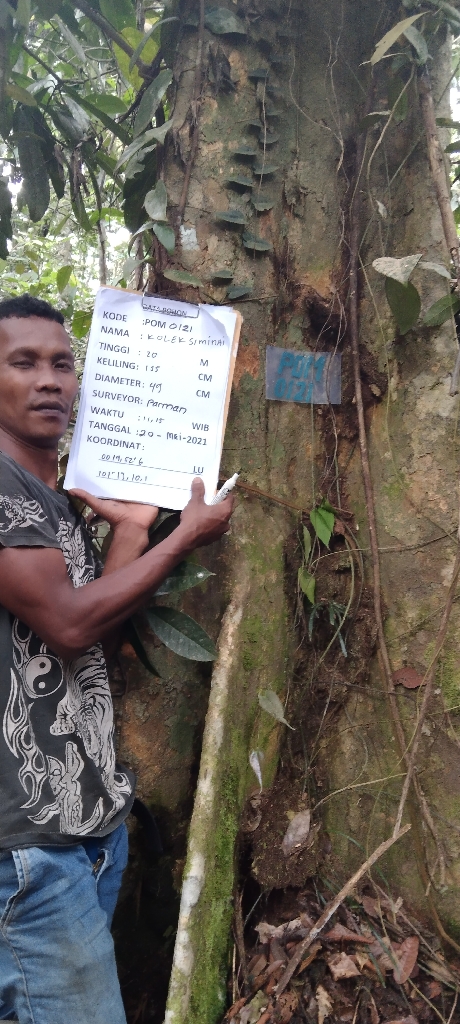 DATA POHON
KODE : POM 0121
NAMA : KOLEK SIMINAI
TINGGI : 20 M
KELILING: 155 CM
DIAMETER: 49 CM
SURVEYOR: Parman
WAKTU : 11,15 WIB
TANGGAL : 20 - Mei - 2021
KOORDINAT:
LU
POM
0121